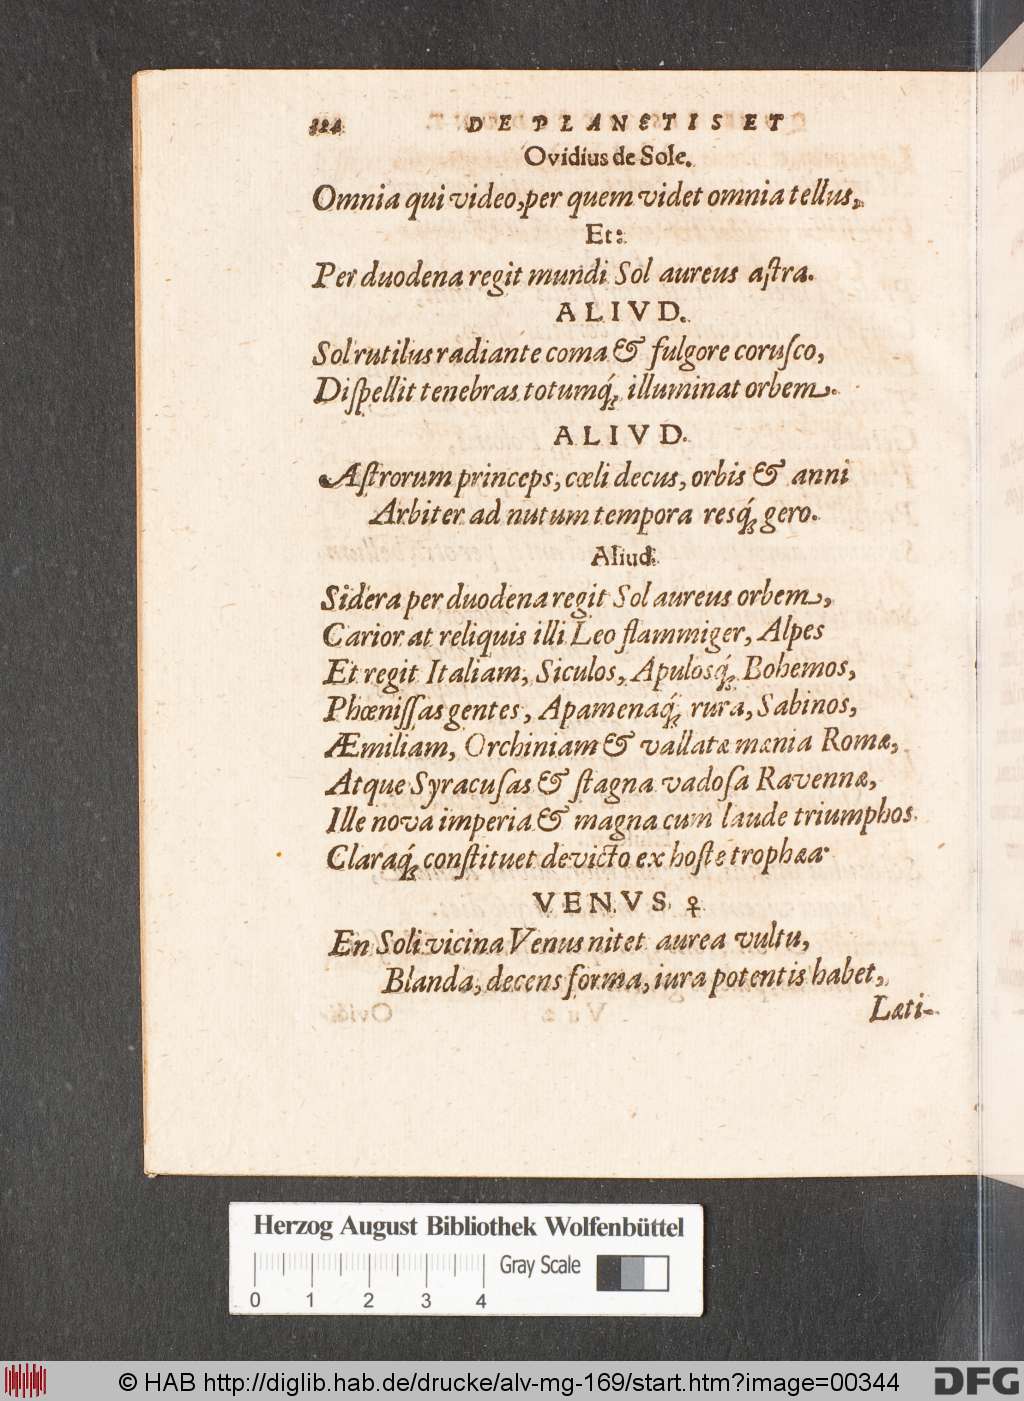 324 DE PLANETIS ET
Ovidius de Sole.
Omnia qui video, per quem videt omnia tellus,
Et:
Per duodena regit mundi Sol aureus aſtra.
ALIVD.
Sol rutilus radiante coma & fulgore coruſco,
Diſpellit tenebras totumq́; illuminat orbem.
ALIVD.
Aſtrorum princeps, cœli decus, orbis & anni
Arbiter ad nutum tempora resq́; gero.
Aliud:
Sidera per duodena regit Sol aureus orbem,
Carior at reliquis illi Leo flammiger, Alpes
Et regit Italiam, Siculos, Apulosq́; Bohemos,
Phœniſſas gentes, Apamenaq́; rura, Sabinos,
Æmiliam, Orchiniam & vallatæ mænia Romæ,
Atque Syracuſas & ſtagna vadoſa Ravennæ,
Ille nova imperia & magna cum laude triumphos
Claraq́; conſtituet devicto ex hoſte trophæa
VENVS ♀
En Soli vicina Venus nitet aurea vultu,
Blanda, decens forma, iura potentis habet,
Læti-
Herzog August Bibliothek Wolfenbüttel
Gray Scale
0 1 2 3 4
© HAB http://diglib.hab.de/drucke/alv-mg-169/start.htm?image=00344
DFG